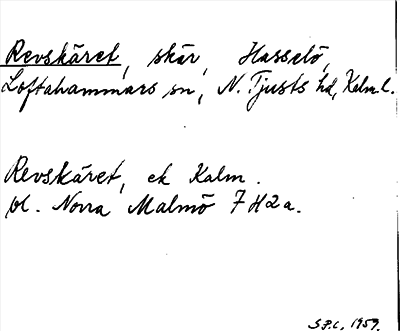 Revskäret, skär, Hasselö,
Loftahammars sn, N. Tjusts hd, Kalm. l.
Revskäret, ek Kalm.
bl. Norra Malmö 7H2a.
S.F.L. 1959.